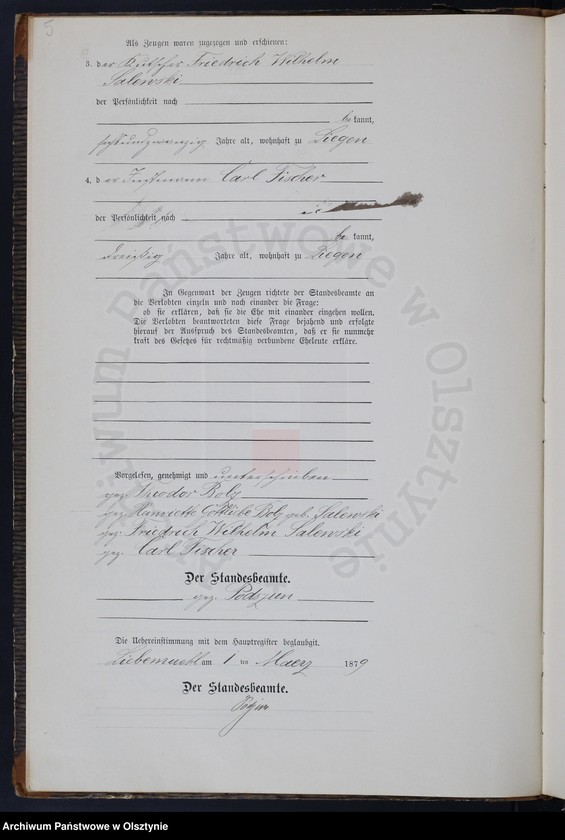 5
Als Zeugen waren zugezogen und erschienen:
3. der Kutscher Friedrich Wilhelm
Salewski
der Persönlichkeit nach
be kannt,
Jahre alt, wohnhaft zu Liegen
4. der Instmann Carl Fischer
der Persönlichkeit nach
be kannt,
dreißig Jahre alt, wohnhaft zu Liegen
In Gegenwart der Zeugen richtete der Standesbeamte an
die Verlobten einzeln und nach einander die Frage:
ob sie erklären, daß sie die Ehe mit einander eingehen wollen.
Die Verlobten beantworteten diese Frage bejahend und erfolgte
hierauf der Ausspruch des Standesbeamten, daß er sie nunmehr
kraft des Gesetzes für rechtmäßig verbundene Eheleute erkläre.
Vorgelesen, genehmigt und unterschrieben
gez. Theodor Bolz
gez. Henriette Gottliebe Bolz geb. Salewski
gez. Friedrich Wilhelm Salewski
gez. Carl Fischer
Der Standesbeamte.
gez. Podszun
Die Uebereinstimmung mit dem Hauptregister beglaubigt.
Liebemuehl am 1 ten Maerz 1879
Der Standesbeamte.
Archiwum Państwowe w Olsztynie
Archiwum Państwowe w Olsztynie